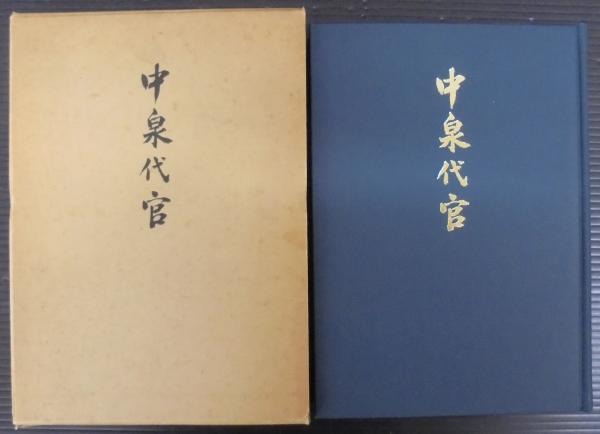 中泉代官
中泉代官